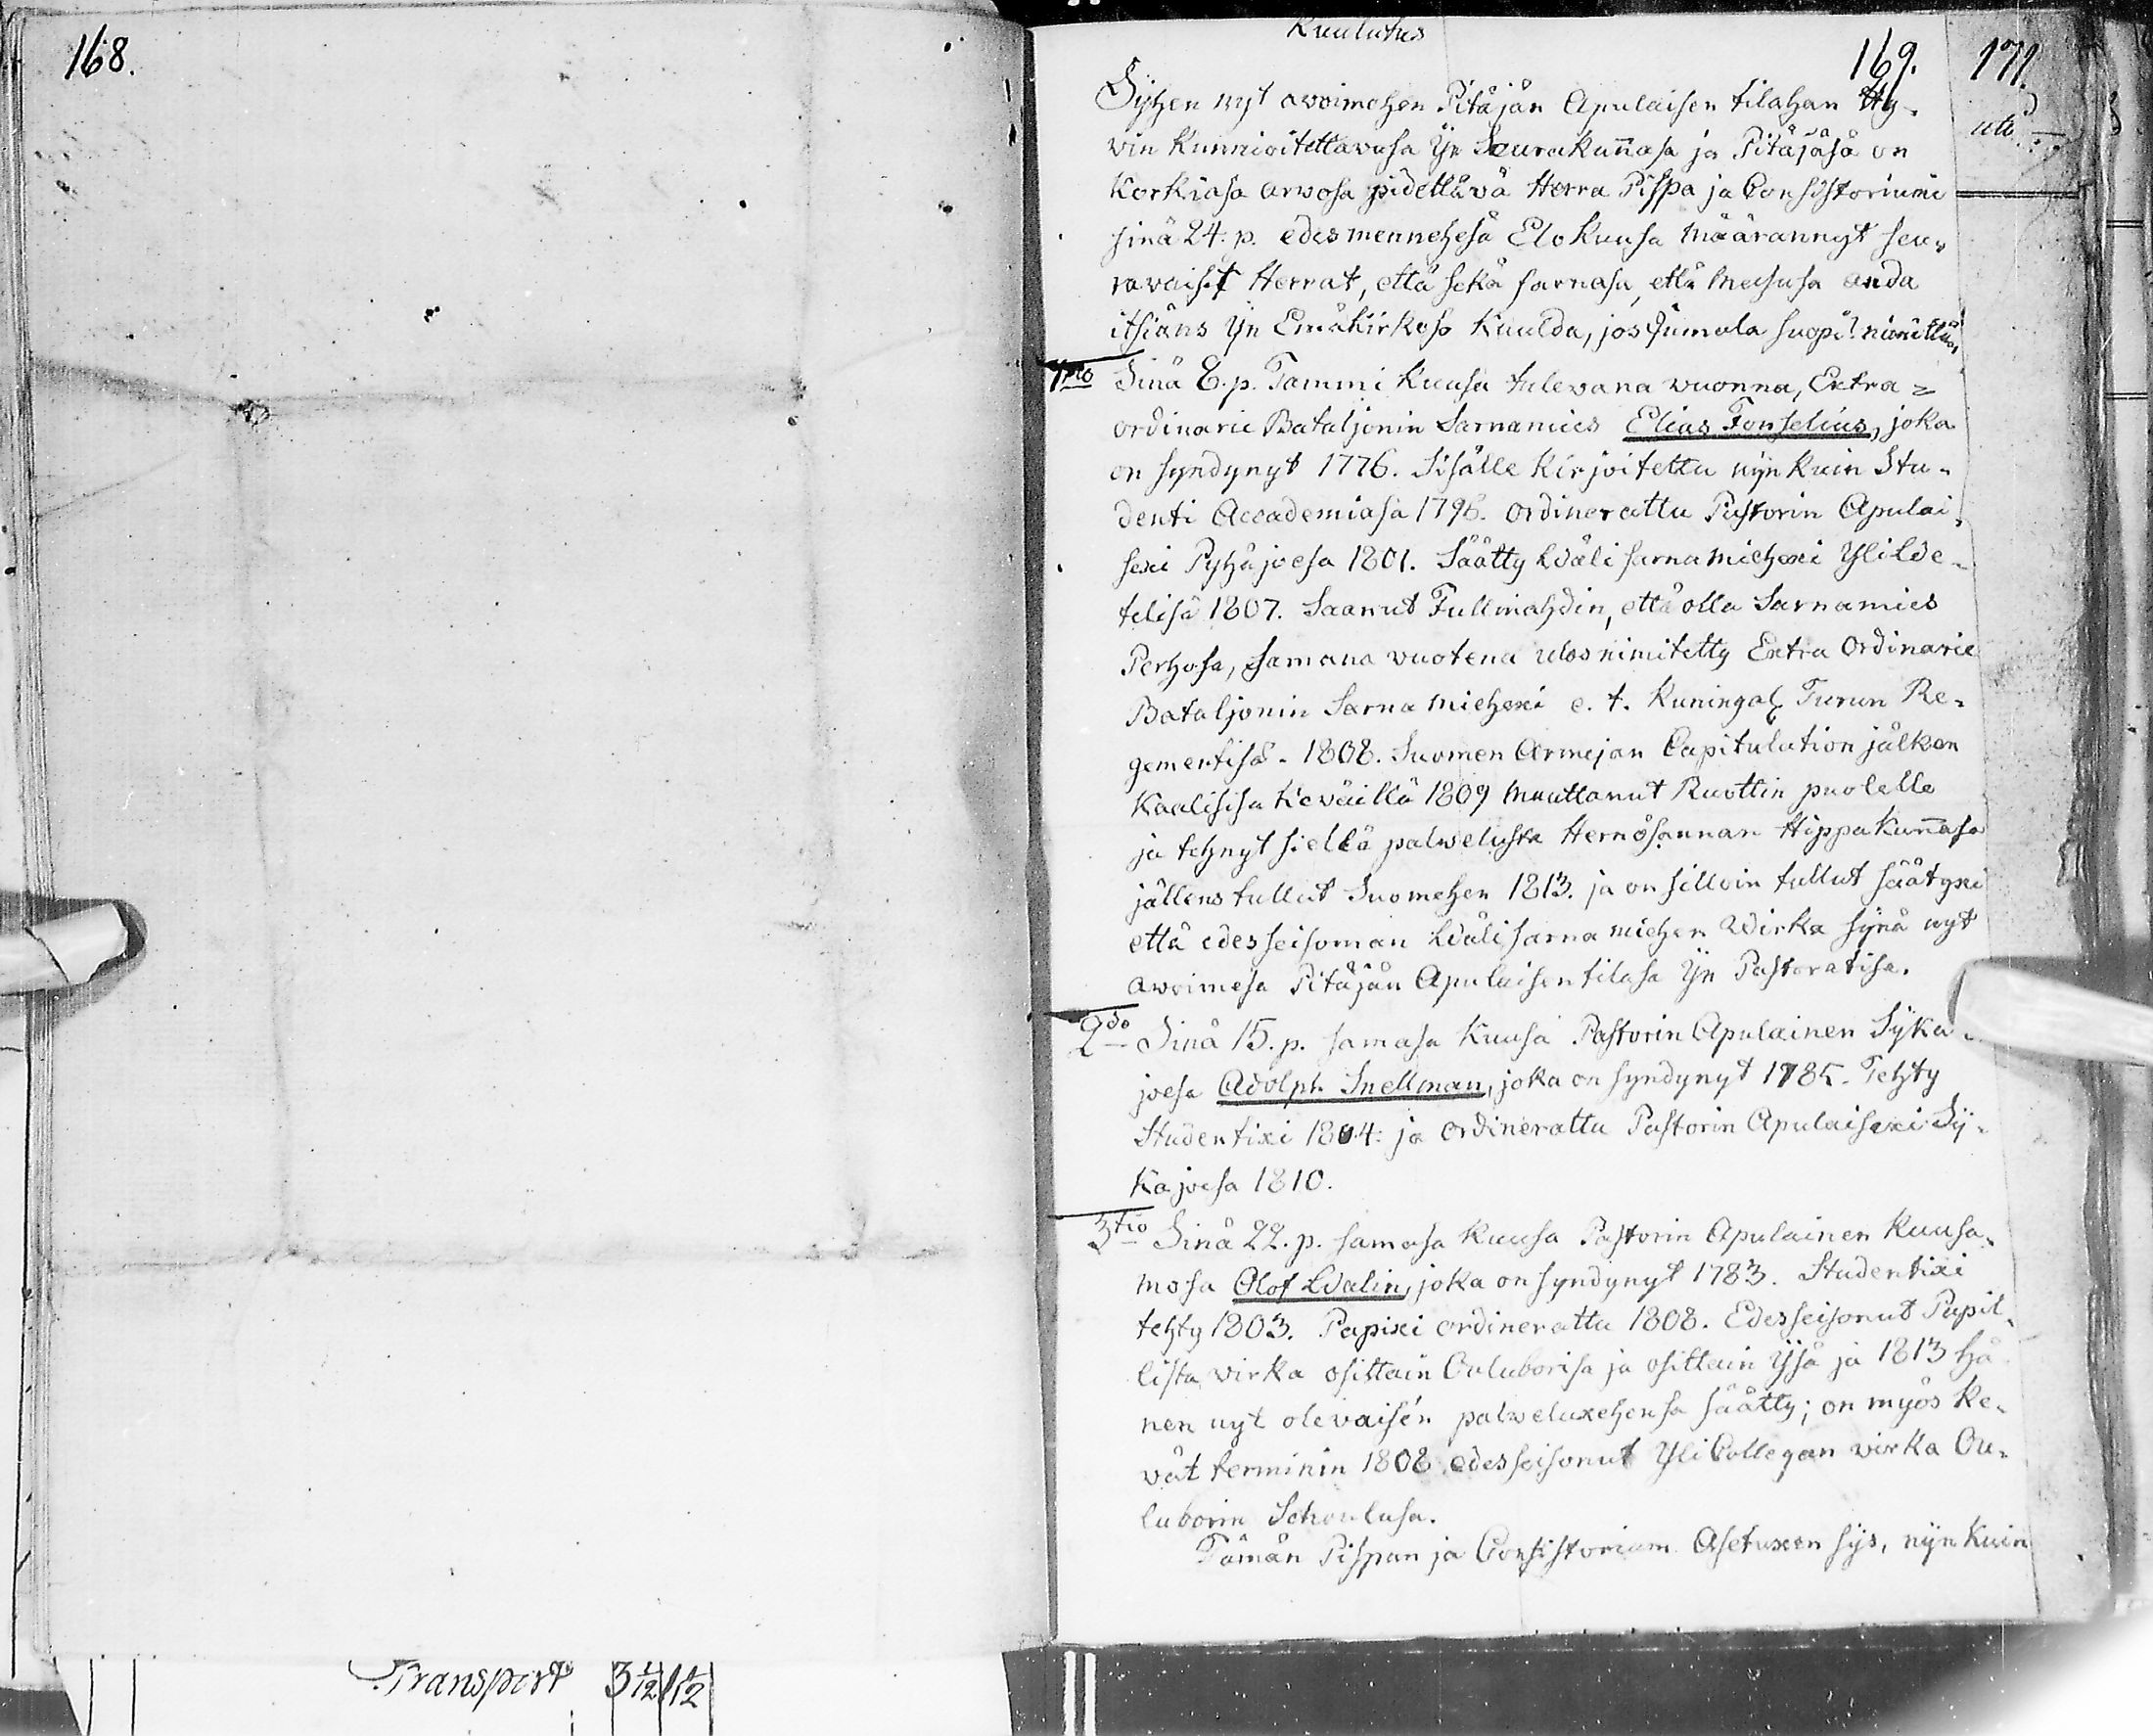 168.
Kuulutus
169.
171.
Syhen nyt awoimehen Pitäjän Apulaisen tilahan Hy-
win Kunnioitettawasa Ijn Seurakuñasa ja Pitäjäsä on
Korkiasa arwosa pidettäwä Herra Pispa ja Consistoriumi
sinä 24. p. edesmennehesä Elokuusa määrännyt seu-
rawaiset Herrat, että sekä sarnasa, että Mesusa anda
itsiäns Ijn Emäkirkosa kuulda, jos Jumala suopi! nimittäin,
1mo Sinä 8. p. Tammi Kuusa tulewana wuonna, Extra=
ordinarie Bataljonin Sarnamies Elias Fonselius, joka
on syndynyt 1776. Sisälle Kirjoitettu nijn kuin Stu-
denti Accademiasa 1796. ordinerattu Pastorin Apulai-
sexi Pyhäjoesa 1801. Säätty Wäli sarnamiehexi Ylilde-
telisä 1807. Saanut Fullmahdin, että olla Sarnamies
Perhosa, samana vuotena ulosnimitetty Extra Ordinarie
Bataljonin Sarna miehexi e. t. Kuningal. Turun Re-
gementisä - 1808. Suomen Armejan Capitulation jälken
Kaalisisa Keväillä 1809 Muuttanut Ruottin puolelle
ja tehnyt siellä palwelusta Hernösannan Hippakuñasa
jällens tullut Suomehen 1813. ja on silloin tullut säätyxi
että edesseisoman Wäli sarna miehen Wirka sijnä nyt
awoimesa Pitäjän Apulaisen tilasa Ijn Pastoratisa.
2do Sinä 15. p. samasa Kuusa Pastorin Apulainen Sijka-
joesa Adolph Snellman, joka on syndynyt 1785. Tehty
Studentixi 1804. ja ordinerattu Pastorin Apulaisexi Sij-
kajoesa 1810.
3tio Sinä 22. p. samasa Kuusa Pastorin Apulainen Kuusa-
mosa Olof Walin, joka on syndynyt 1783. Studentixi
tehty 1803. Papixi ordinerattu 1808. Edesseisonut Papil-
lista wirka osittain Ouluborisa ja osittain Ijsä ja 1813 hä-
nen nyt olevaisen palweluxehensa säätty; on myös Ke-
vät terminin 1808 edesseisonut Yli Collegan wirka Ou-
luborin Schoulusa.
Tämän Pispan ja Consistorium Asetuxen sijs, nijn kuin
Transport 3 1/12 1/12